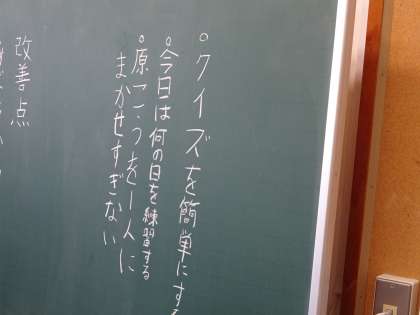 。クイズを簡単にする
。今日は何の日を練習する
。原こうを1人に
まかせすぎない
改善点